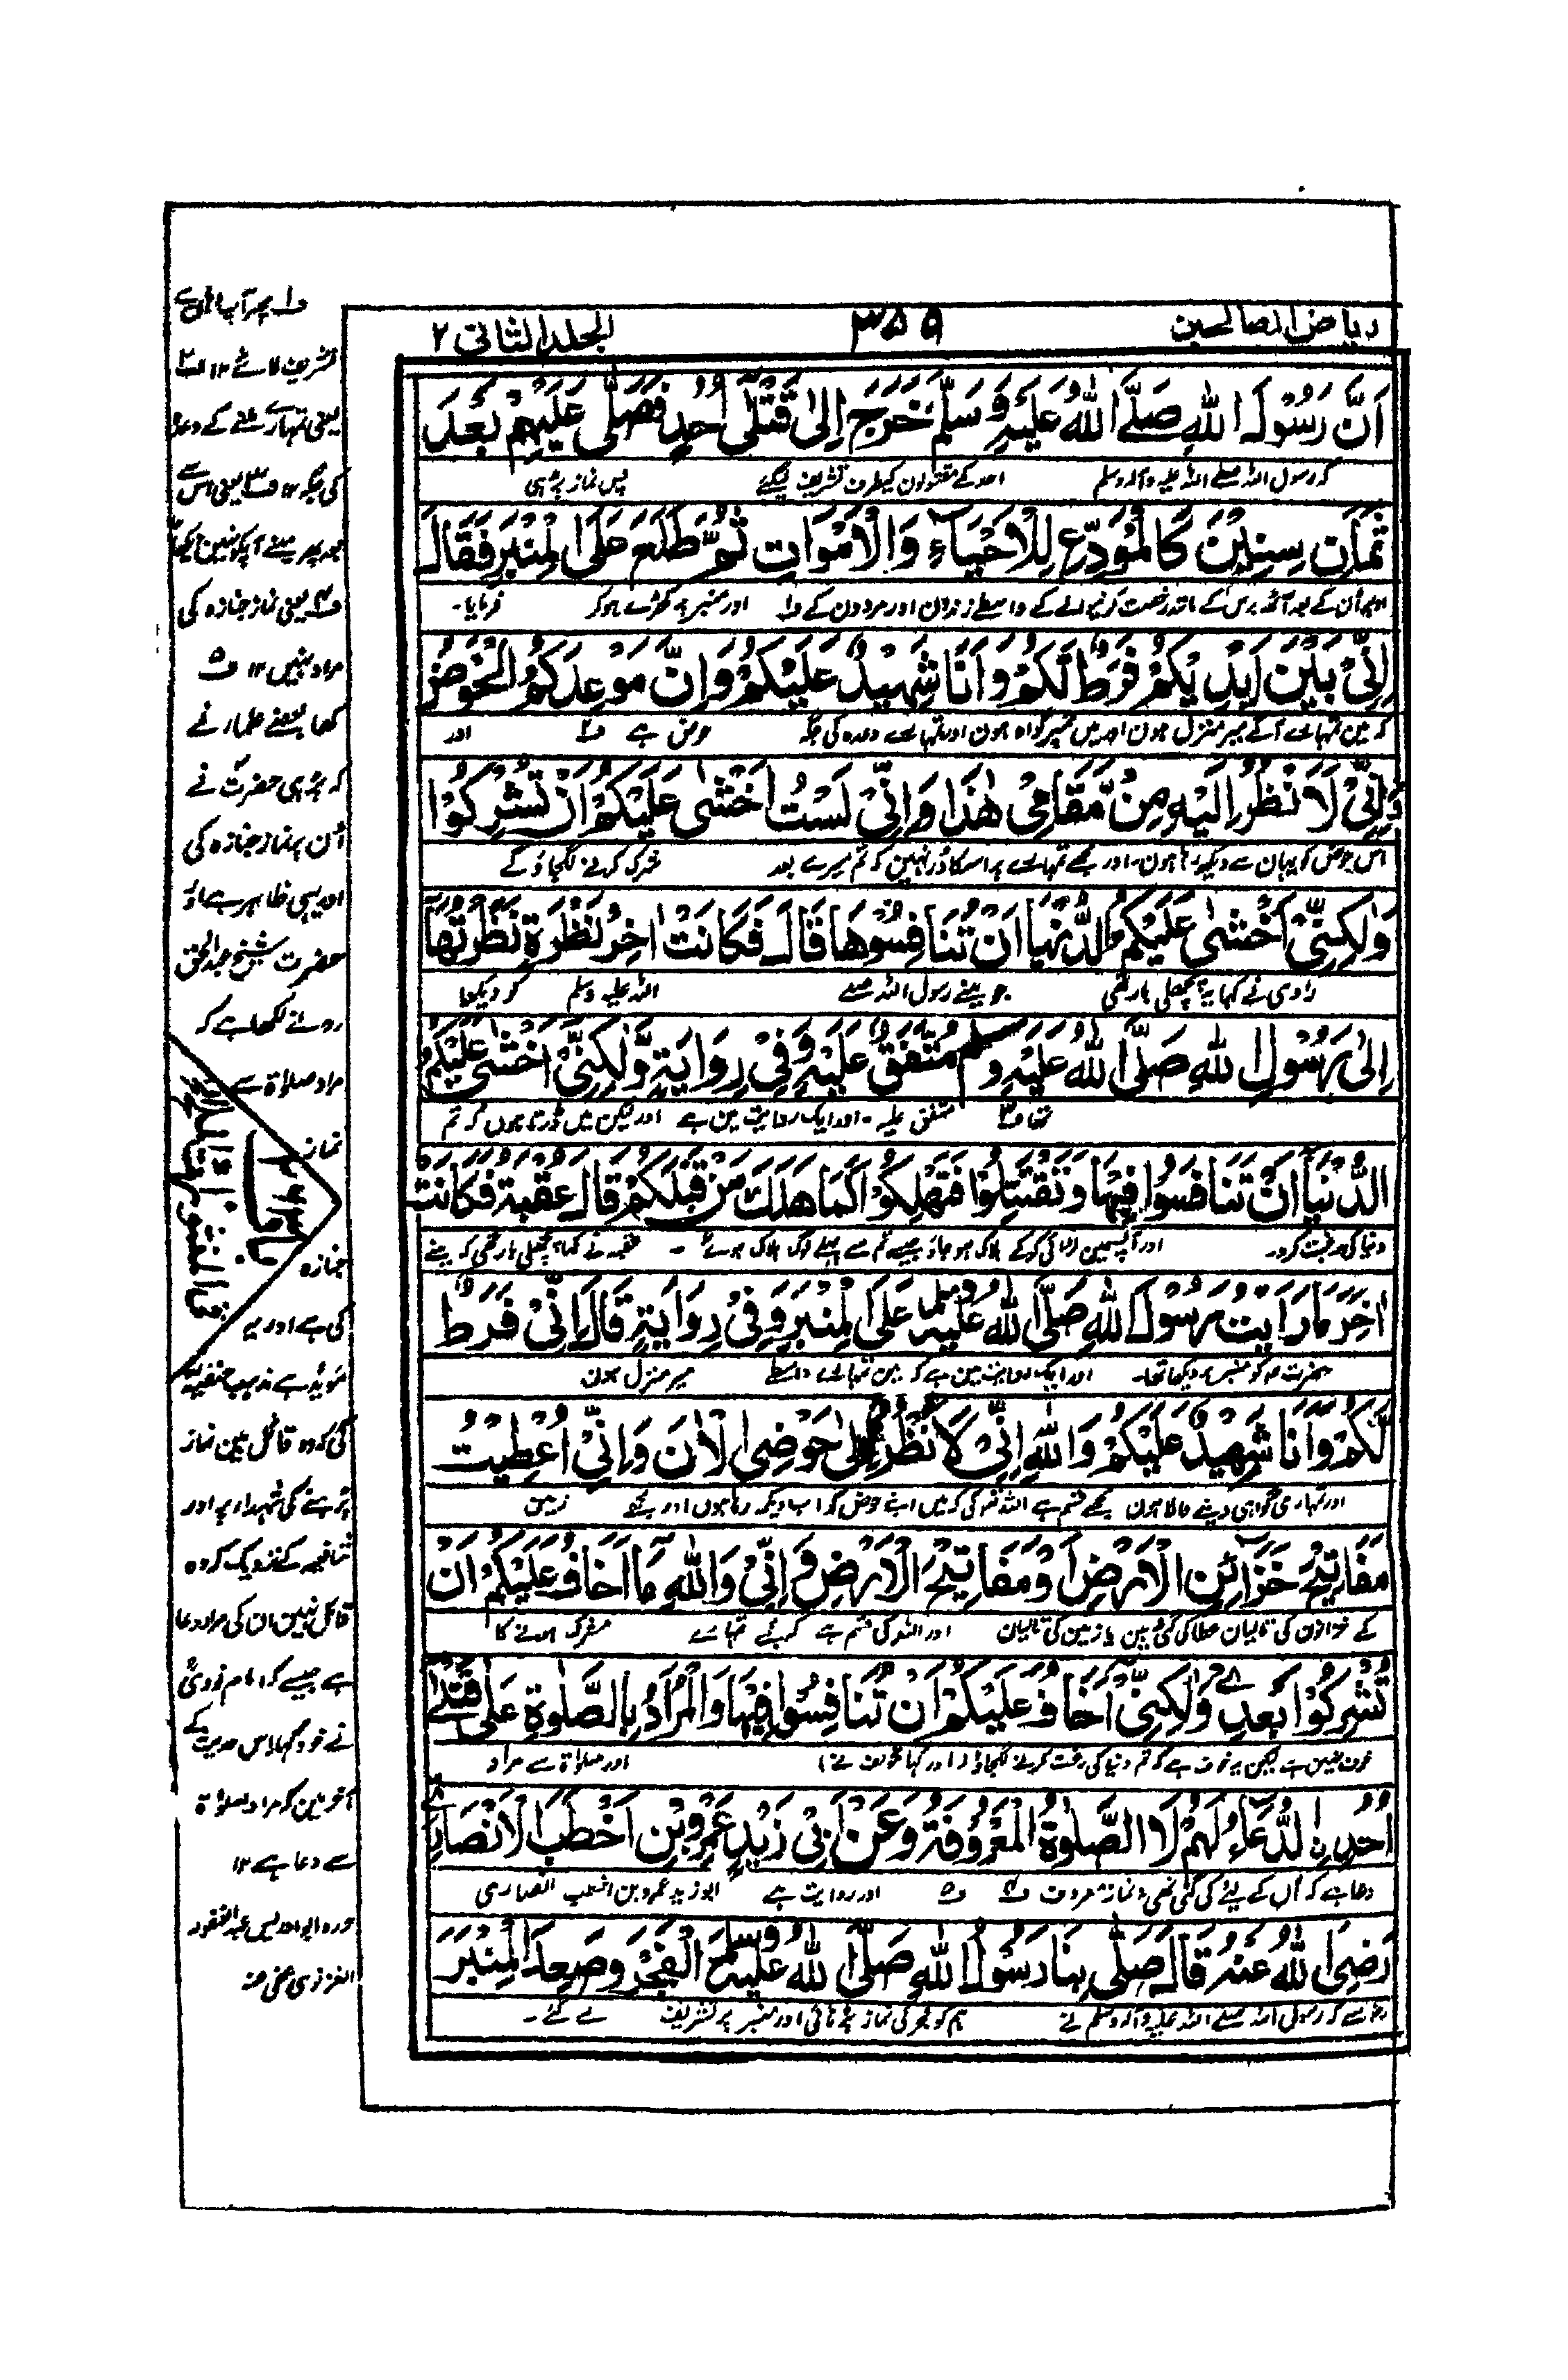 ریاض الصالحین
۳۵۵
الجلد الثانی ۲
اَنَّ رَسُوْلَ اللهِ صَلَّى اللهُ عَلَيْهِ وَسَلَّمَ خَرَجَ اِلىٰ قَتْلٰى اُحُدٍ فَصَلّٰى عَلَيْهِمْ بَعْدَ
کہ رسول اللہ صلے اللہ علیہ وآلہ وسلم احد کے مقتولون کیطرف تشریف لیگئے پس نماز پڑہی
ثَمَانِ سِنِيْنَ كَالْمُوَدِّعِ لِلْاَحْيَاءِ وَالْاَمْوَاتِ ثُمَّ طَلَعَ عَلَى الْمِنْبَرِ فَقَالَ
اوپر اُن کے بعد آٹھ برس کے مانند رخصت کرنیوالے کے واسطے زندون اور مردون کے ف۱ اور منبر پر کھڑے ہوکر فرمایا۔
اِنِّىْ بَيْنَ اَيْدِيْكُمْ فَرَطٌ لَّكُمْ وَاَنَا شَهِيْدٌ عَلَيْكُمْ وَاِنَّ مَوْعِدَكُمُ الْحَوْضُ
کہ مین تمہارے آگے میر منزل ہون اور میں تمپر گواہ ہون اور تمہارے وعدہ کی جگہ حوض ہے ف۲ اور
وَاِنِّىْ لَاَنْظُرُ اِلَيْهِ مِنْ مَّقَامِىْ هٰذَا وَاِنِّىْ لَسْتُ اَخْشٰى عَلَيْكُمْ اَنْ تُشْرِكُوْا
اس حوض کو یہان سے دیکھ رہا ہون۔ اور مجھے تمہارے پر اس کا ڈر نہین کہ تم میرے بعد شرک کرنے لگجاؤ گے
وَلٰكِنِّىْ اَخْشٰى عَلَيْكُمُ الدُّنْيَا اَنْ تَنَافَسُوْهَا قَالَ فَكَانَتْ اٰخِرَ نَظْرَةٍ نَظَرْتُهَا
راوی نے کہا یہ پچھلی بار تھی جو مینے رسول اللہ صلے اللہ علیہ وسلم کو دیکھا
اِلىٰ رَسُوْلِ اللهِ صَلَّى اللهُ عَلَيْهِ وسلم مُتَّفَقٌ عَلَيْهِ وَفِىْ رِوَايَةٍ وَّلٰكِنِّىْ اَخْشٰى عَلَيْكُمُ
تھا ف۳ متفق علیہ ۔ اور ایک روایت مین ہے اور لیکن میں ڈرتا ہوں کہ تم
الدُّنْيَا اَنْ تَنَافَسُوْا فِيْهَا وَتَقْتَتِلُوْا فَتَهْلِكُوْا كَمَا هَلَكَ مَنْ قَبْلَكُمْ قَالَ عُقْبَةُ فَكَانَتْ
دنیا کی رغبت کرو۔ اور آپسمین لڑائی کرکے ہلاک ہو جاؤ جیسے تم سے پہلے لوگ ہلاک ہوئے ۔ عقبہ نے کہا پچھلی بار تھی کہ مینے
اٰخِرَ مَا رَاَيْتُ رَسُوْلَ اللهِ صَلَّى اللهُ عَلَيْهِ وسلم عَلَى الْمِنْبَرِ وَفِىْ رِوَايَةٍ قَالَ اِنِّىْ فَرَطٌ
حضرت کو منبر پر دیکھا تھا۔ اور ایک روایت مین ہے کہ مین تمہارے واسطے میر منزل ہون
لَّكُمْ وَاَنَا شَهِيْدٌ عَلَيْكُمْ وَاللهِ اِنِّىْ لَاَنْظُرُ اِلىٰ حَوْضِى الْاٰنَ وَاِنِّىْ اُعْطِيْتُ
اور تمہاری گواہی دینے والا ہون مجھے قسم ہے اللہ کی کہ میں اپنے حوض کو اب دیکھ رہا ہوں اور مجھے زمین
مَفَاتِيْحَ خَزَائِنِ الْاَرْضِ اَوْ مَفَاتِيْحَ الْاَرْضِ وَاِنِّىْ وَاللهِ مَا اَخَافُ عَلَيْكُمْ اَنْ
کے خزانون کی تالیان عطا کی گئی ہین یا زمین کی تالیان اور اللہ کی قسم ہے کہ مجھے تمہارے مشرک ہونے کا
تُشْرِكُوْا بَعْدِىْ وَلٰكِنِّىْ اَخَافُ عَلَيْكُمْ اَنْ تَنَافَسُوْا فِيْهَا وَالْمُرَادُ بِالصَّلٰوةِ عَلٰى قَتْلٰى
خوف نہین ہے لیکن یہ خوف ہے کہ تم دنیا کی رغبت کرنے لگجاؤ (اور کہا مؤلف نے) اور صلوٰۃ سے مراد
اُحُدٍ الدُّعَاءُ لَهُمْ لَا الصَّلٰوةُ الْمَعْرُوْفَةُ وَعَنْ اَبِىْ زَيْدٍ عَمْرِو بْنِ اَخْطَبَ الْاَنْصَارِىِّ
دعا ہے کہ اُن کے لئے کی گئی تھی نہ نماز معروف ف۴ ف۵ اور روایت ہے ابو زید عمرو بن اخطب انصاری
رَضِىَ اللهُ عَنْهُ قَالَ صَلّٰى بِنَا رَسُوْلُ اللهِ صَلَّى اللهُ عَلَيْهِ وسلم الْفَجْرَ وَصَعِدَ الْمِنْبَرَ
رضہ سے کہ رسول اللہ صلے اللہ علیہ وآلہ وسلم نے ہم کو فجر کی نماز پڑہائی اور منبر پر تشریف لے گئے ۔
ف۱ پھر آپ
تشریف لائے ۱۲ ف۲
یعنی تمہارے ملنے کے وعدہ
کی جگہ ۱۲ ف۳ یعنی اس سے
بعد پھر مینے آپکو نہین دیکھا
ف۴ یعنی نماز جنازہ کی
مراد نہیں ۱۲ ف۵
کہا بعضے علمار نے
کہ پڑہی حضرت نے
اُن پر نماز جنازہ کی
اور یہی ظاہر ہے اور
حضرت شیخ عبدالحق
رو نے لکھا ہے کہ
مراد صلوٰۃ سے
نماز
جنازہ
کی ہے اور یہ
مؤید ہے مذہب حنفیہ
کی کہ وہ قائل ہین نماز
پڑہنے کی شہدار پر اور
شافعیہ کے نزدیک کہ وہ
قائل نہین ان کی مراد دعا
ہے جیسے کہ امام نووی
نے خود کہا اس حدیث کے
آخر مین کہ مراد صلوٰۃ
سے دعا ہے ۱۲
حررہ ابو ادریس عبد الغفور
الغزنوی عفی عنہ